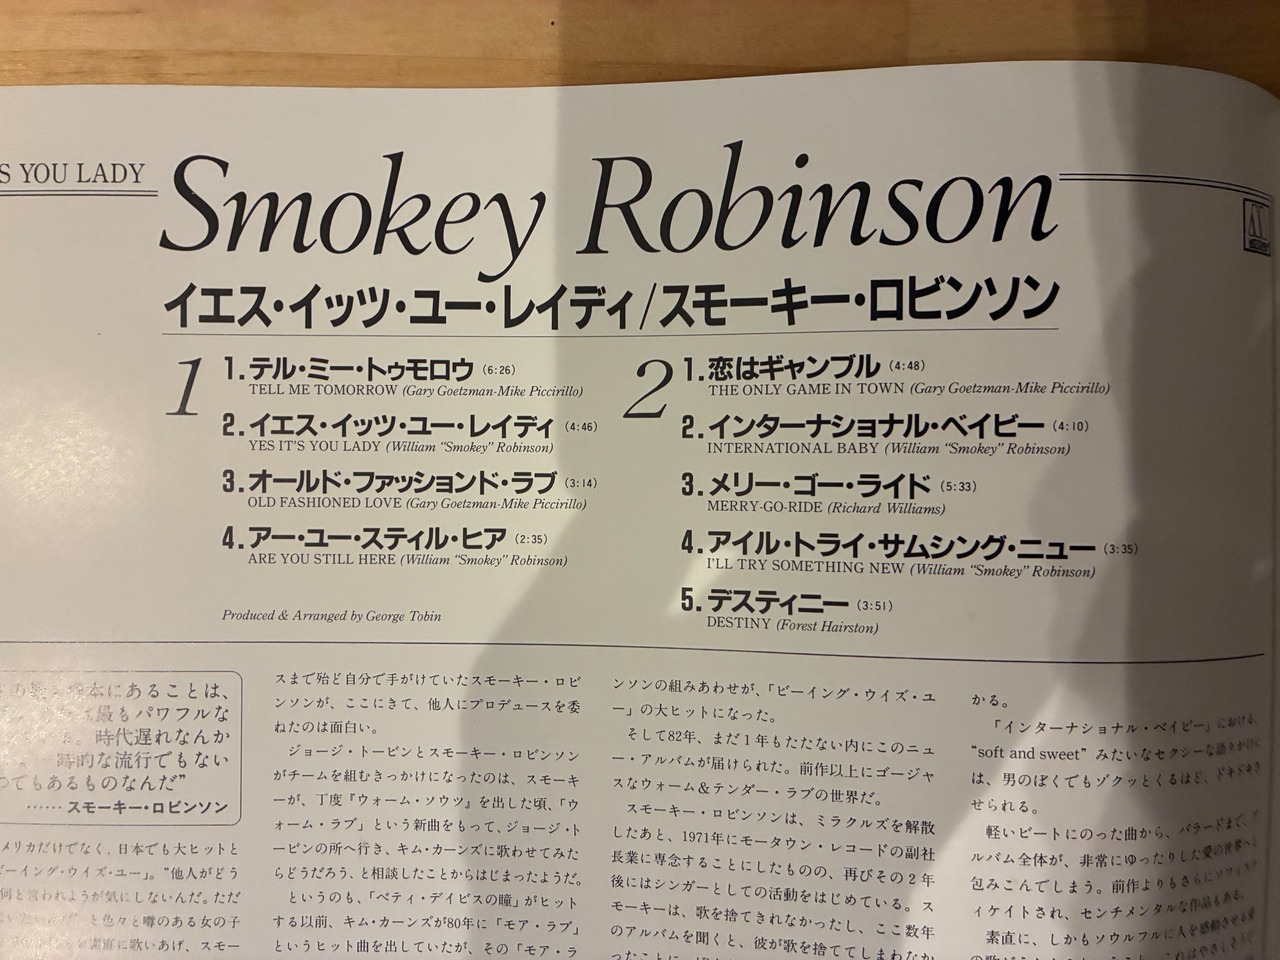 S YOU LADY
Smokey Robinson
イエス・イッツ・ユー・レイディ/スモーキー・ロビンソン
1
1.テル・ミー・トゥモロウ (6:26)
TELL ME TOMORROW (Gary Goetzman-Mike Piccirillo)
2.イエス・イッツ・ユー・レイディ (4:46)
YES IT'S YOU LADY (William “Smokey” Robinson)
3.オールド・ファッションド・ラブ (3:14)
OLD FASHIONED LOVE (Gary Goetzman-Mike Piccirillo)
4.アー・ユー・スティル・ヒア (2:35)
ARE YOU STILL HERE (William “Smokey” Robinson)
Produced & Arranged by George Tobin
2
1.恋はギャンブル (4:48)
THE ONLY GAME IN TOWN (Gary Goetzman-Mike Piccirillo)
2.インターナショナル・ベイビー (4:10)
INTERNATIONAL BABY (William “Smokey” Robinson)
3.メリー・ゴー・ライド (5:33)
MERRY-GO-RIDE (Richard Williams)
4.アイル・トライ・サムシング・ニュー (3:35)
I'LL TRY SOMETHING NEW (William “Smokey” Robinson)
5.デスティニー (3:51)
DESTINY (Forest Hairston)
本にあることは、
最もパワフルな
。時代遅れなんか
時的な流行でもない
つでもあるものなんだ”
……スモーキー・ロビンソン
メリカだけでなく、日本でも大ヒットと
ビーイング・ウイズ・ユー」。“他人がどう
何と言われようが気にしないんだ。ただ
と色々と噂のある女の子
素直に歌いあげ、スモー
スまで殆ど自分で手がけていたスモーキー・ロビ
ンソンが、ここにきて、他人にプロデュースを委
ねたのは面白い。
ジョージ・トービンとスモーキー・ロビンソン
がチームを組むきっかけになったのは、スモーキ
ーが、丁度『ウォーム・ソウツ』を出した頃、「ウ
ォーム・ラブ」という新曲をもって、ジョージ・ト
ービンの所へ行き、キム・カーンズに歌わせてみた
らどうだろう、と相談したことからはじまったようだ。
というのも、「ベティ・デイビスの瞳」がヒット
する以前、キム・カーンズが80年に「モア・ラブ」
というヒット曲を出していたが、その「モア・ラ
ンソンの組みあわせが、「ビーイング・ウイズ・ユ
ー」の大ヒットになった。
そして82年、まだ1年もたたない内にこのニュ
ー・アルバムが届けられた。前作以上にゴージャ
スなウォーム&テンダー・ラブの世界だ。
スモーキー・ロビンソンは、ミラクルズを解散
したあと、1971年にモータウン・レコードの副社
長業に専念することにしたものの、再びその2年
後にはシンガーとしての活動をはじめている。ス
モーキーは、歌を捨てきれなかったし、ここ数年
のアルバムを聞くと、彼が歌を捨ててしまわなか
かる。
「インターナショナル・ベイビー」における、
“soft and sweet” みたいなセクシーな語りかけに
は、男のぼくでもゾクッとくるほど、ドキドキさ
せられる。
軽いビートにのった曲から、バラードまで、ア
ルバム全体が、非常にゆったりした愛の世界へ
包みこんでしまう。前作よりもさらにソフィステ
ィケイトされ、センチメンタルな作品もある。
素直に、しかもソウルフルに人を感動させる